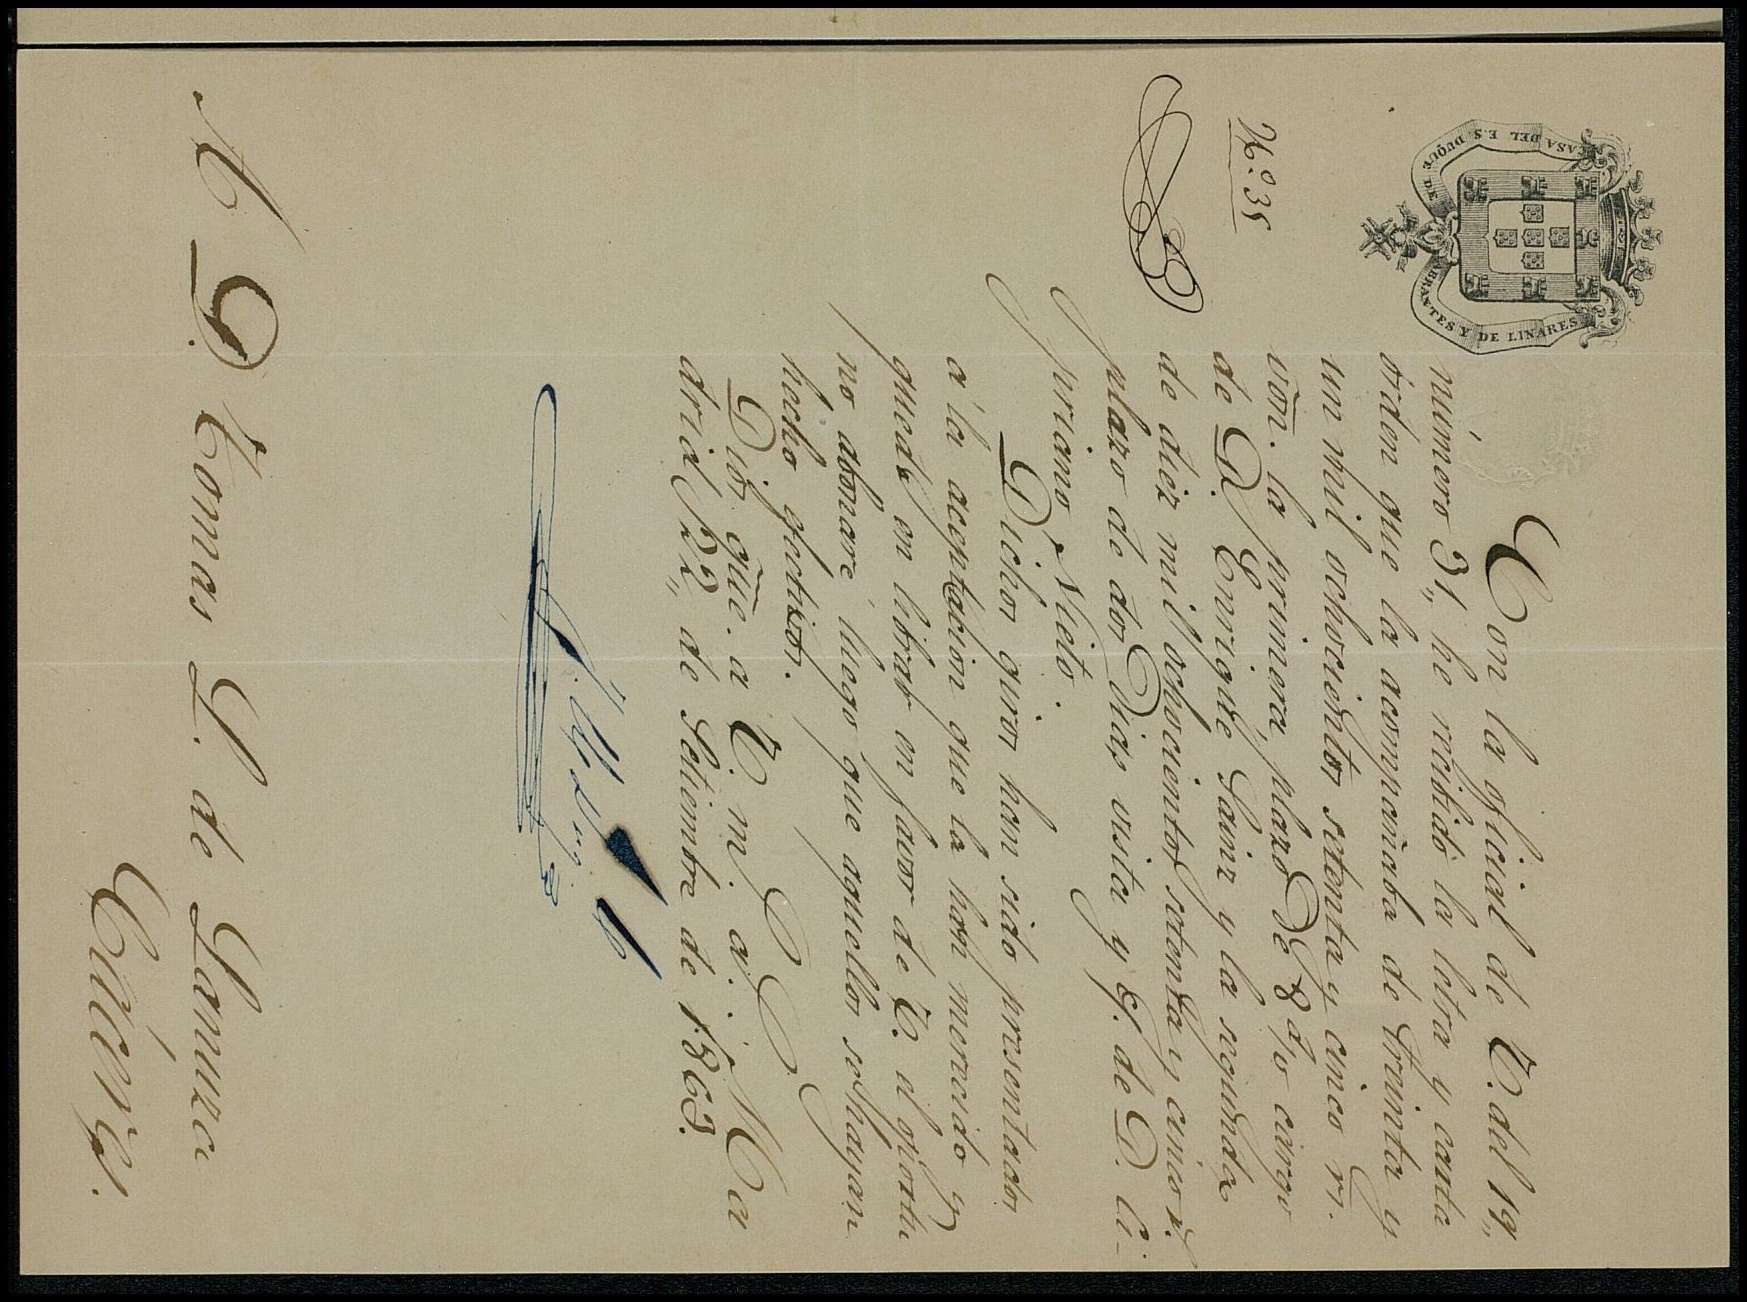 CASA DEL E.S. DUQUE DE ABRANTES Y DE LINARES
N.º 35
Con la oficial de V. del 19,,
número 31,, he recibido la letra y carta
órden que la acompañaba de treinta y
un mil ochocientos setenta y cinco r.s
von. la primera, plazo de 8 d/v cargo
de D. Enrique Sainz y la segunda
de diez mil ochocientos setenta y cinco r.s
plazo de dos dias vista y c/. de D. Ci-
priano Nieto.
Dichos giros han sido presentados
a la aceptacion que la han merecido y
quedo en librar en favor de V. al
no abonaré luego que aquellos se hayan
hecho efectivos.
Dios gũe. a V. m. a. Ma
drid 22,, de Setiembre de 1863.
A D. Tomas L. de Lanuza
Cáceres.